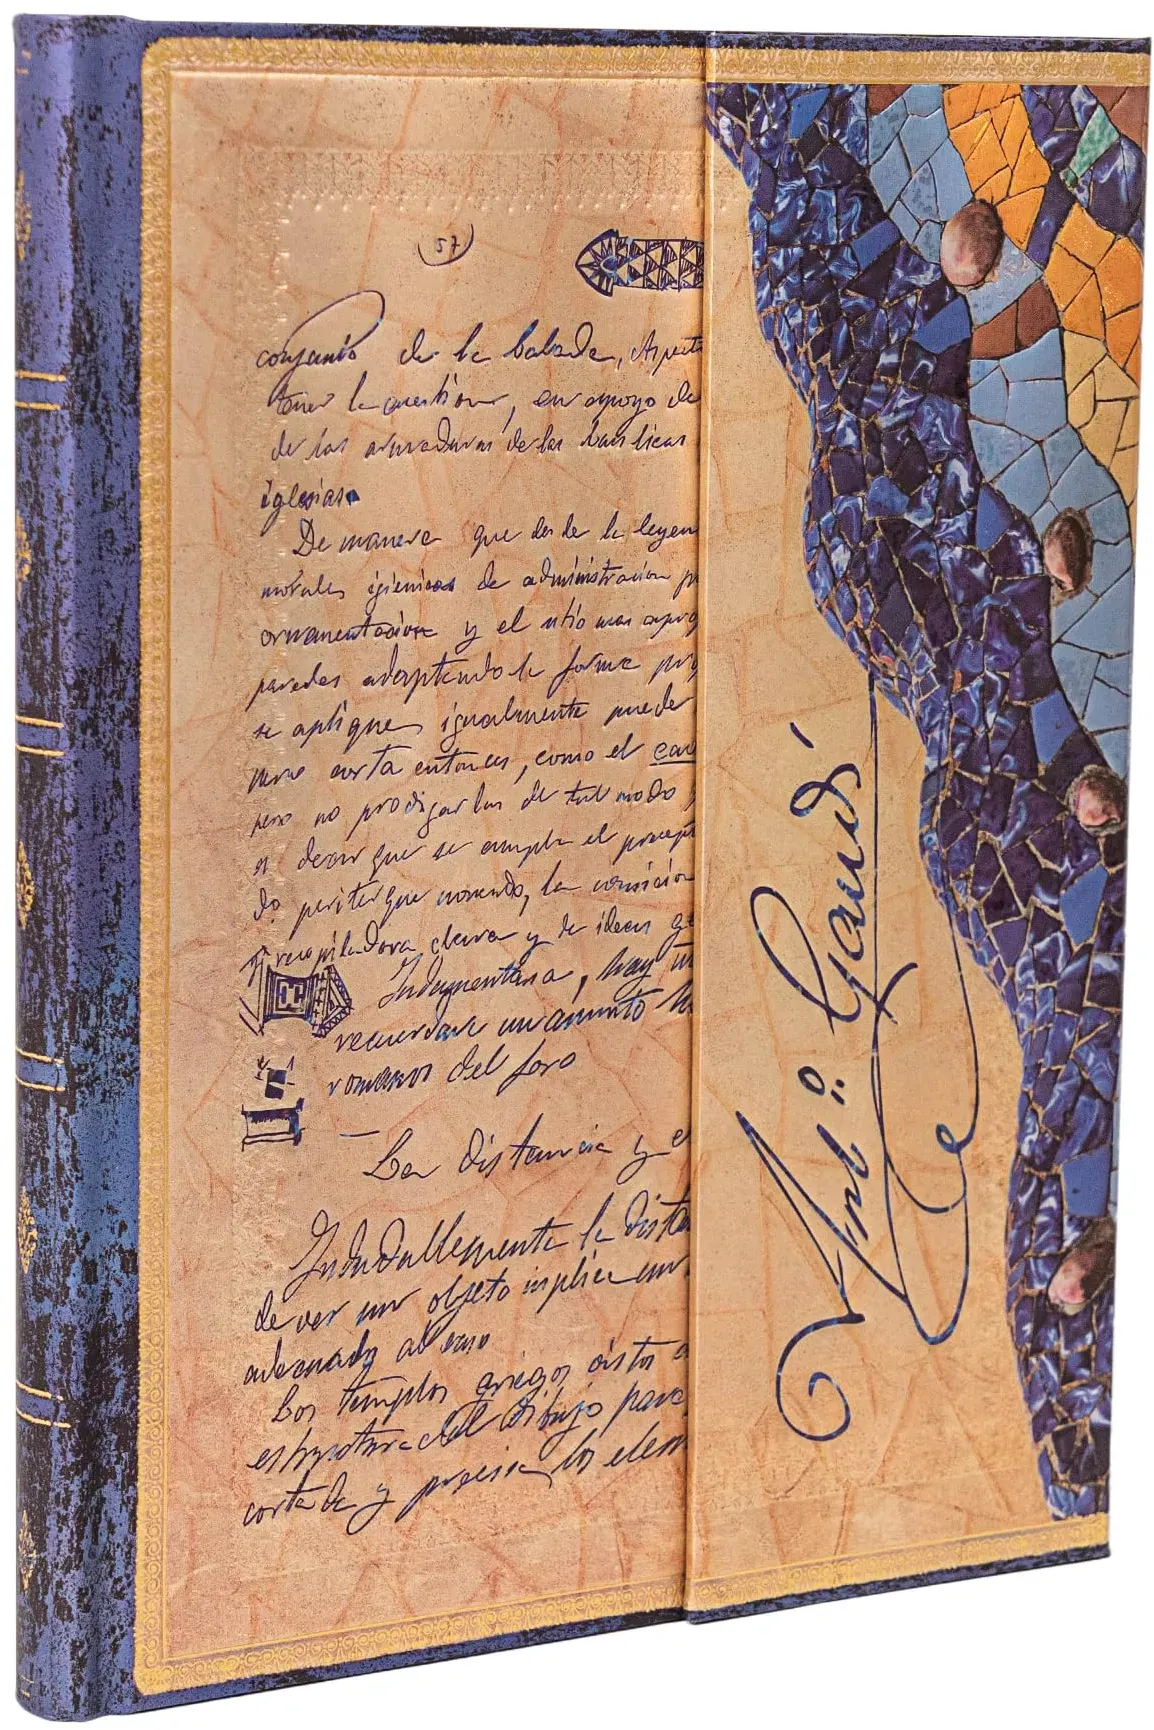 (57)
conjunto de la balada,
tener la cuestion, en apoyo de
de las armaduras de las basilicas
iglesias.
De manera que desde la leyen
morales igienicas de administracion p
ornamentacion y el sitio mas aprop
paredes adaptando la forma pr
se aplique, igualmente puede
corta entonces, como el
pero no prodigarlas de tal modo
a decir que se cumpla el precept
do
recopiladora clara y de ideas
Indumentaria, hay un
recuerdase un asunto
romanos del foro
— La distancia y e
Indudablemente la dista
de ver un objeto implica un
adecuado al caso
Los templos griegos vistos a
estructura del dibujo para
cortada y precisa, los elem
Antº. Gaudí